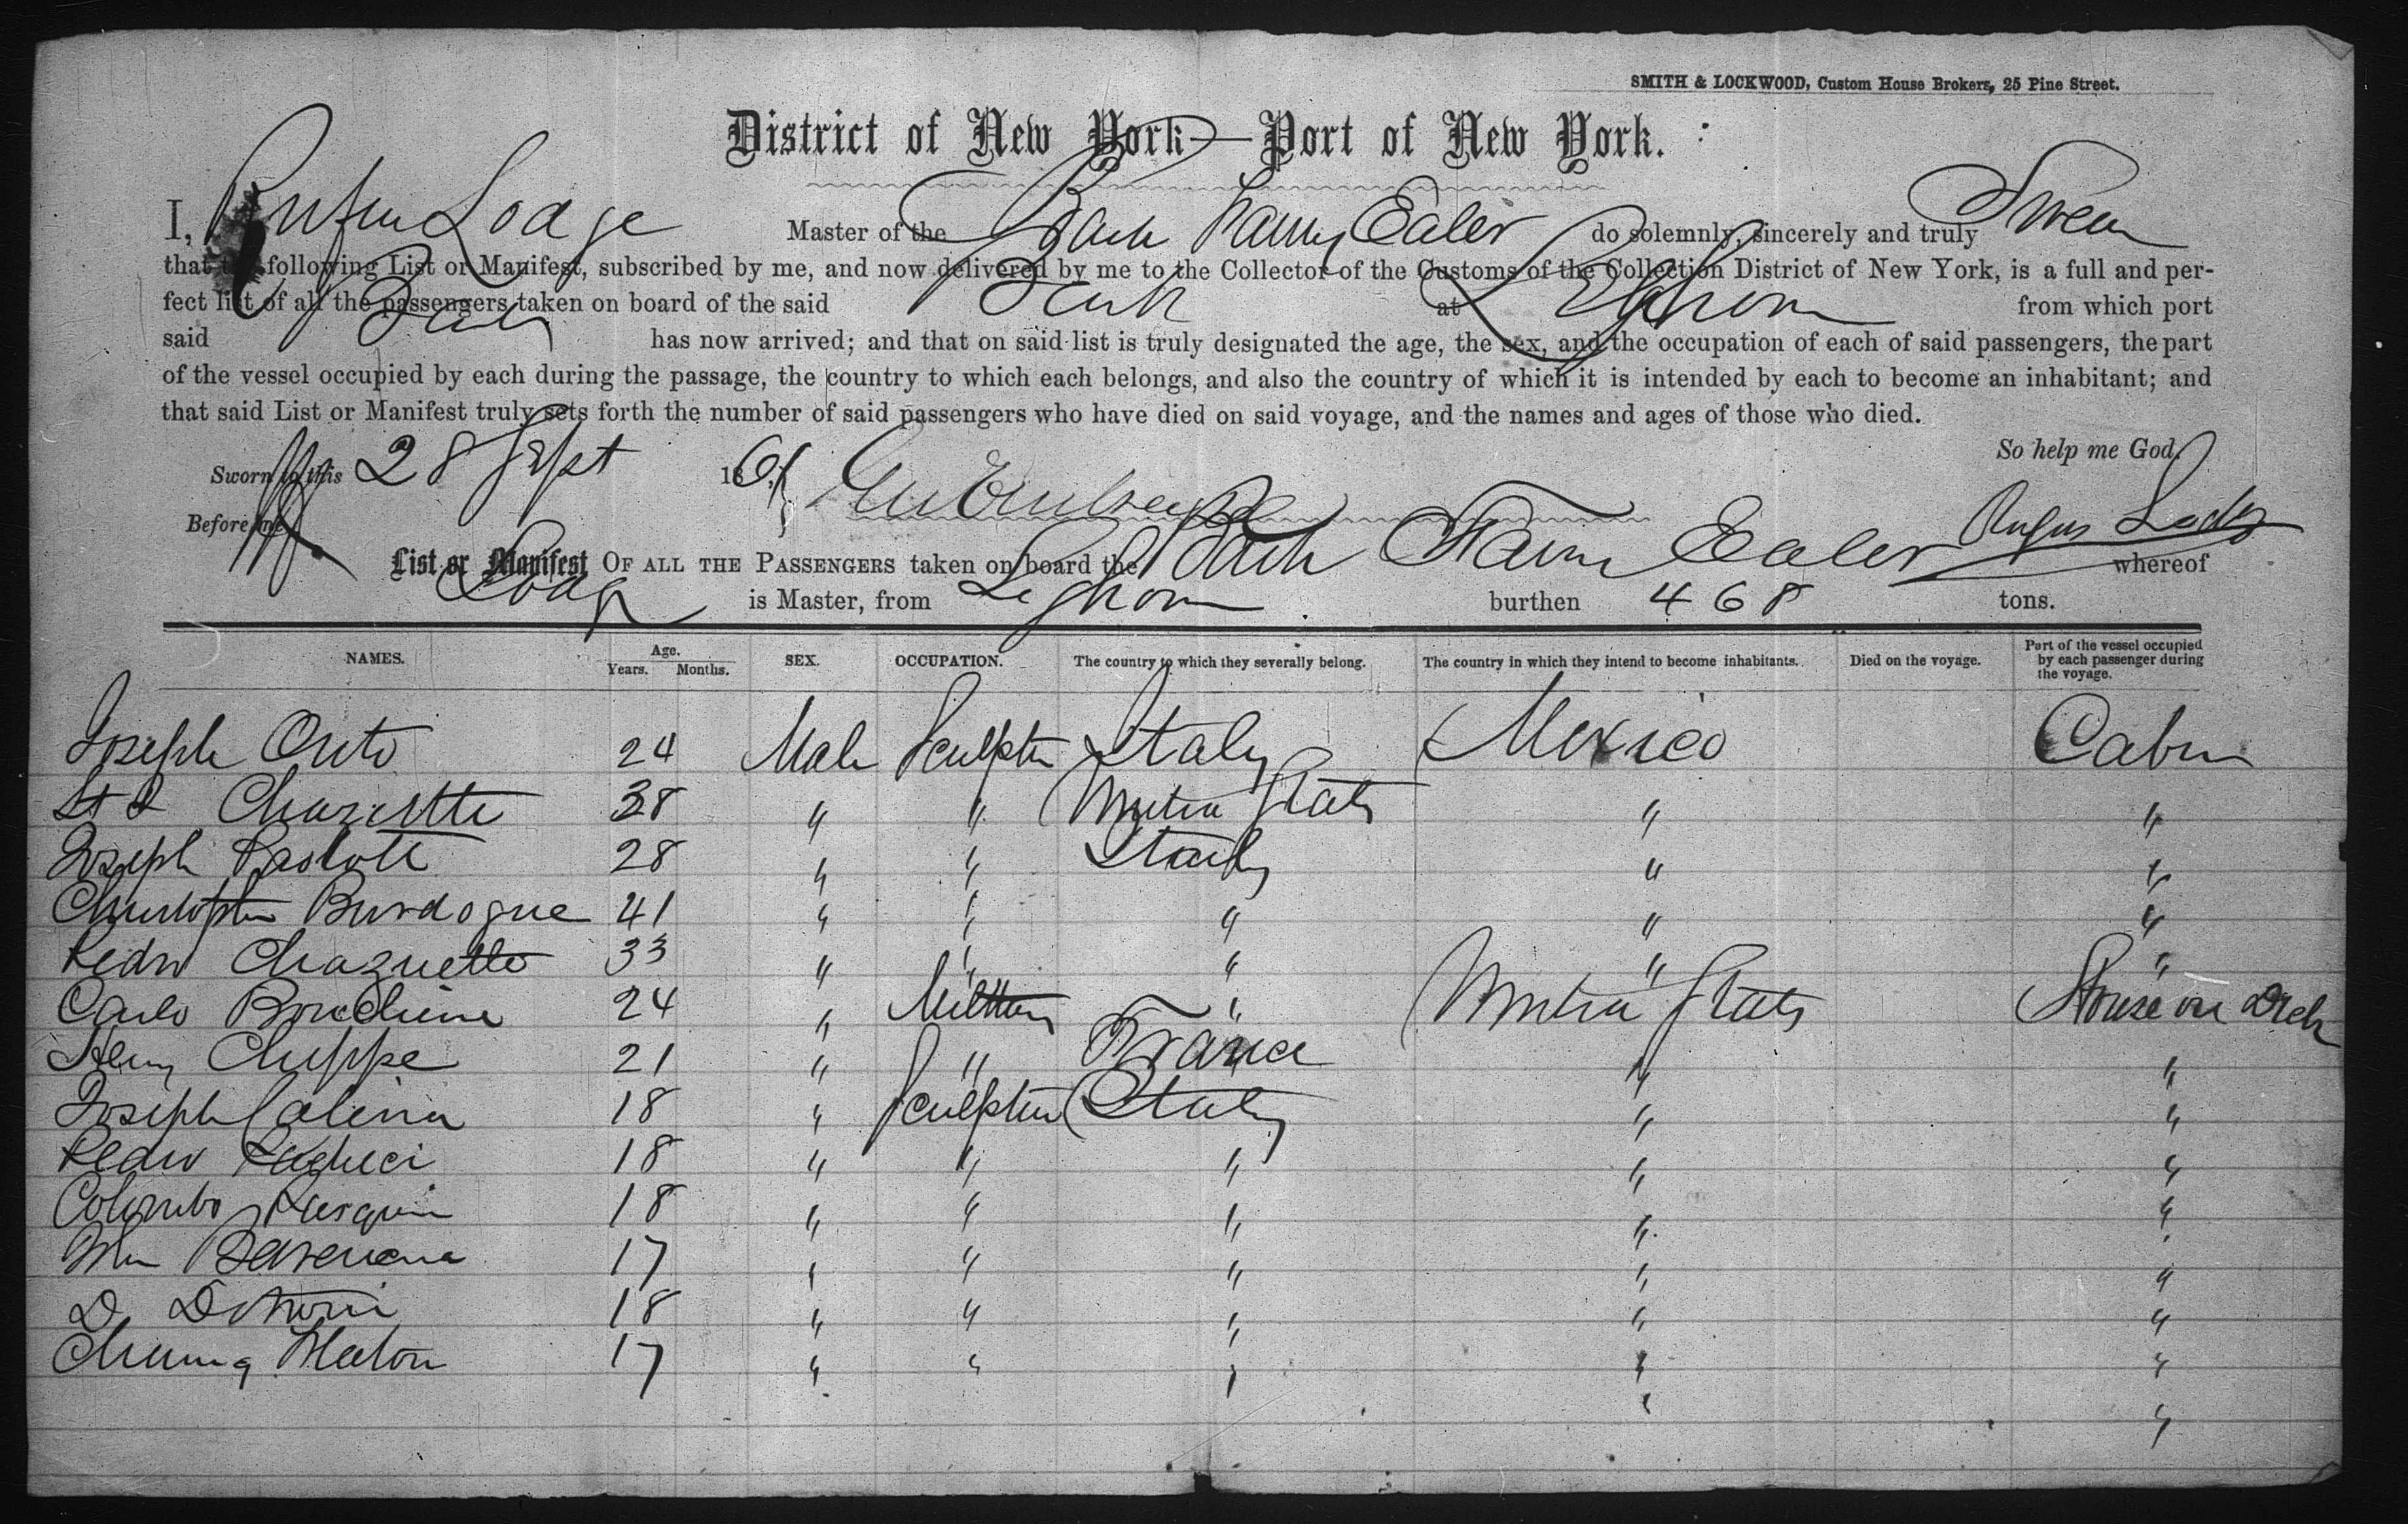 SMITH & LOCKWOOD, Custom House Brokers, 25 Pine Street.
District of New York—Port of New York.
I, Rufus Lodge Master of the Bark Fanny Ealer do solemnly, sincerely and truly Swear
that the following List or Manifest, subscribed by me, and now delivered by me to the Collector of the Customs of the Collection District of New York, is a full and per-
fect list of all the passengers taken on board of the said Bark at Leghorn from which port
said Bark has now arrived; and that on said list is truly designated the age, the sex, and the occupation of each of said passengers, the part
of the vessel occupied by each during the passage, the country to which each belongs, and also the country of which it is intended by each to become an inhabitant; and
that said List or Manifest truly sets forth the number of said passengers who have died on said voyage, and the names and ages of those who died.
So help me God.
Sworn to this 28 Sept 186
Before me
Rufus Lodge
List or Manifest OF ALL THE PASSENGERS taken on board the Bark Fanny Ealer whereof
Lodge is Master, from Leghorn burthen 468 tons.
NAMES. Age. Years. Months. SEX. OCCUPATION. The country to which they severally belong. The country in which they intend to become inhabitants. Died on the voyage. Part of the vessel occupied by each passenger during the voyage.
Joseph Outo 24 Male Sculptor Italy Mexico Cabin
Chazette 38 " " United States " "
Joseph 28 " " Italy " "
Christopher Burdogne 41 " " " " "
Pedro Chazuetto 33 " " " " "
Carlo 24 " " United States House on Deck
Henry Chippe 21 " " France " "
Joseph Calina 18 " Sculptor Italy " "
Pedro 18 " " " " "
Colombo Pasquin 18 " " " " "
Wm 17 " " " " "
D 18 " " " " "
17 " " " " "
"